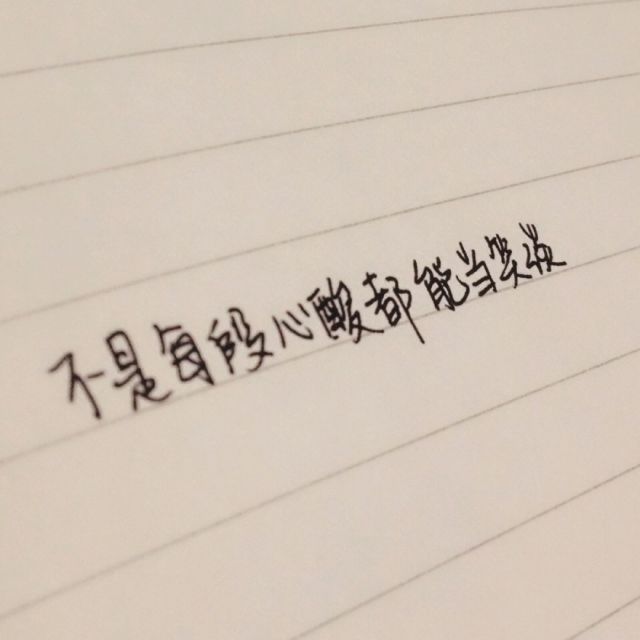 不是每段心酸都能当笑谈